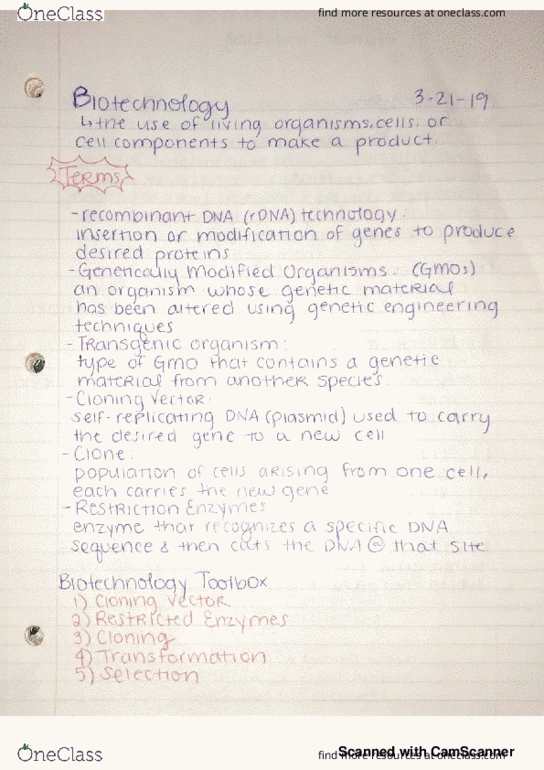 OneClass
find more resources at oneclass.com
Biotechnology 3-21-19
↳the use of living organisms, cells, or
cell components to make a product
Terms
-recombinant DNA (rDNA) technology:
insertion or modification of genes to produce
desired proteins
-Genetically Modified Organisms: (GMOs)
an organism whose genetic material
has been altered using genetic engineering
techniques
-Transgenic organism:
type of Gmo that contains a genetic
material from another species.
-Cloning Vector:
self-replicating DNA (plasmid) used to carry
the desired gene to a new cell
-Clone:
population of cells arising from one cell,
each carries the new gene
-Restriction Enzymes
enzyme that recognizes a specific DNA
sequence & then cuts the DNA @ that site
Biotechnology Toolbox
1) Cloning Vector
2) Restricted Enzymes
3) Cloning
4) Transformation
5) Selection
OneClass
find more resources at oneclass.com
Scanned with CamScanner